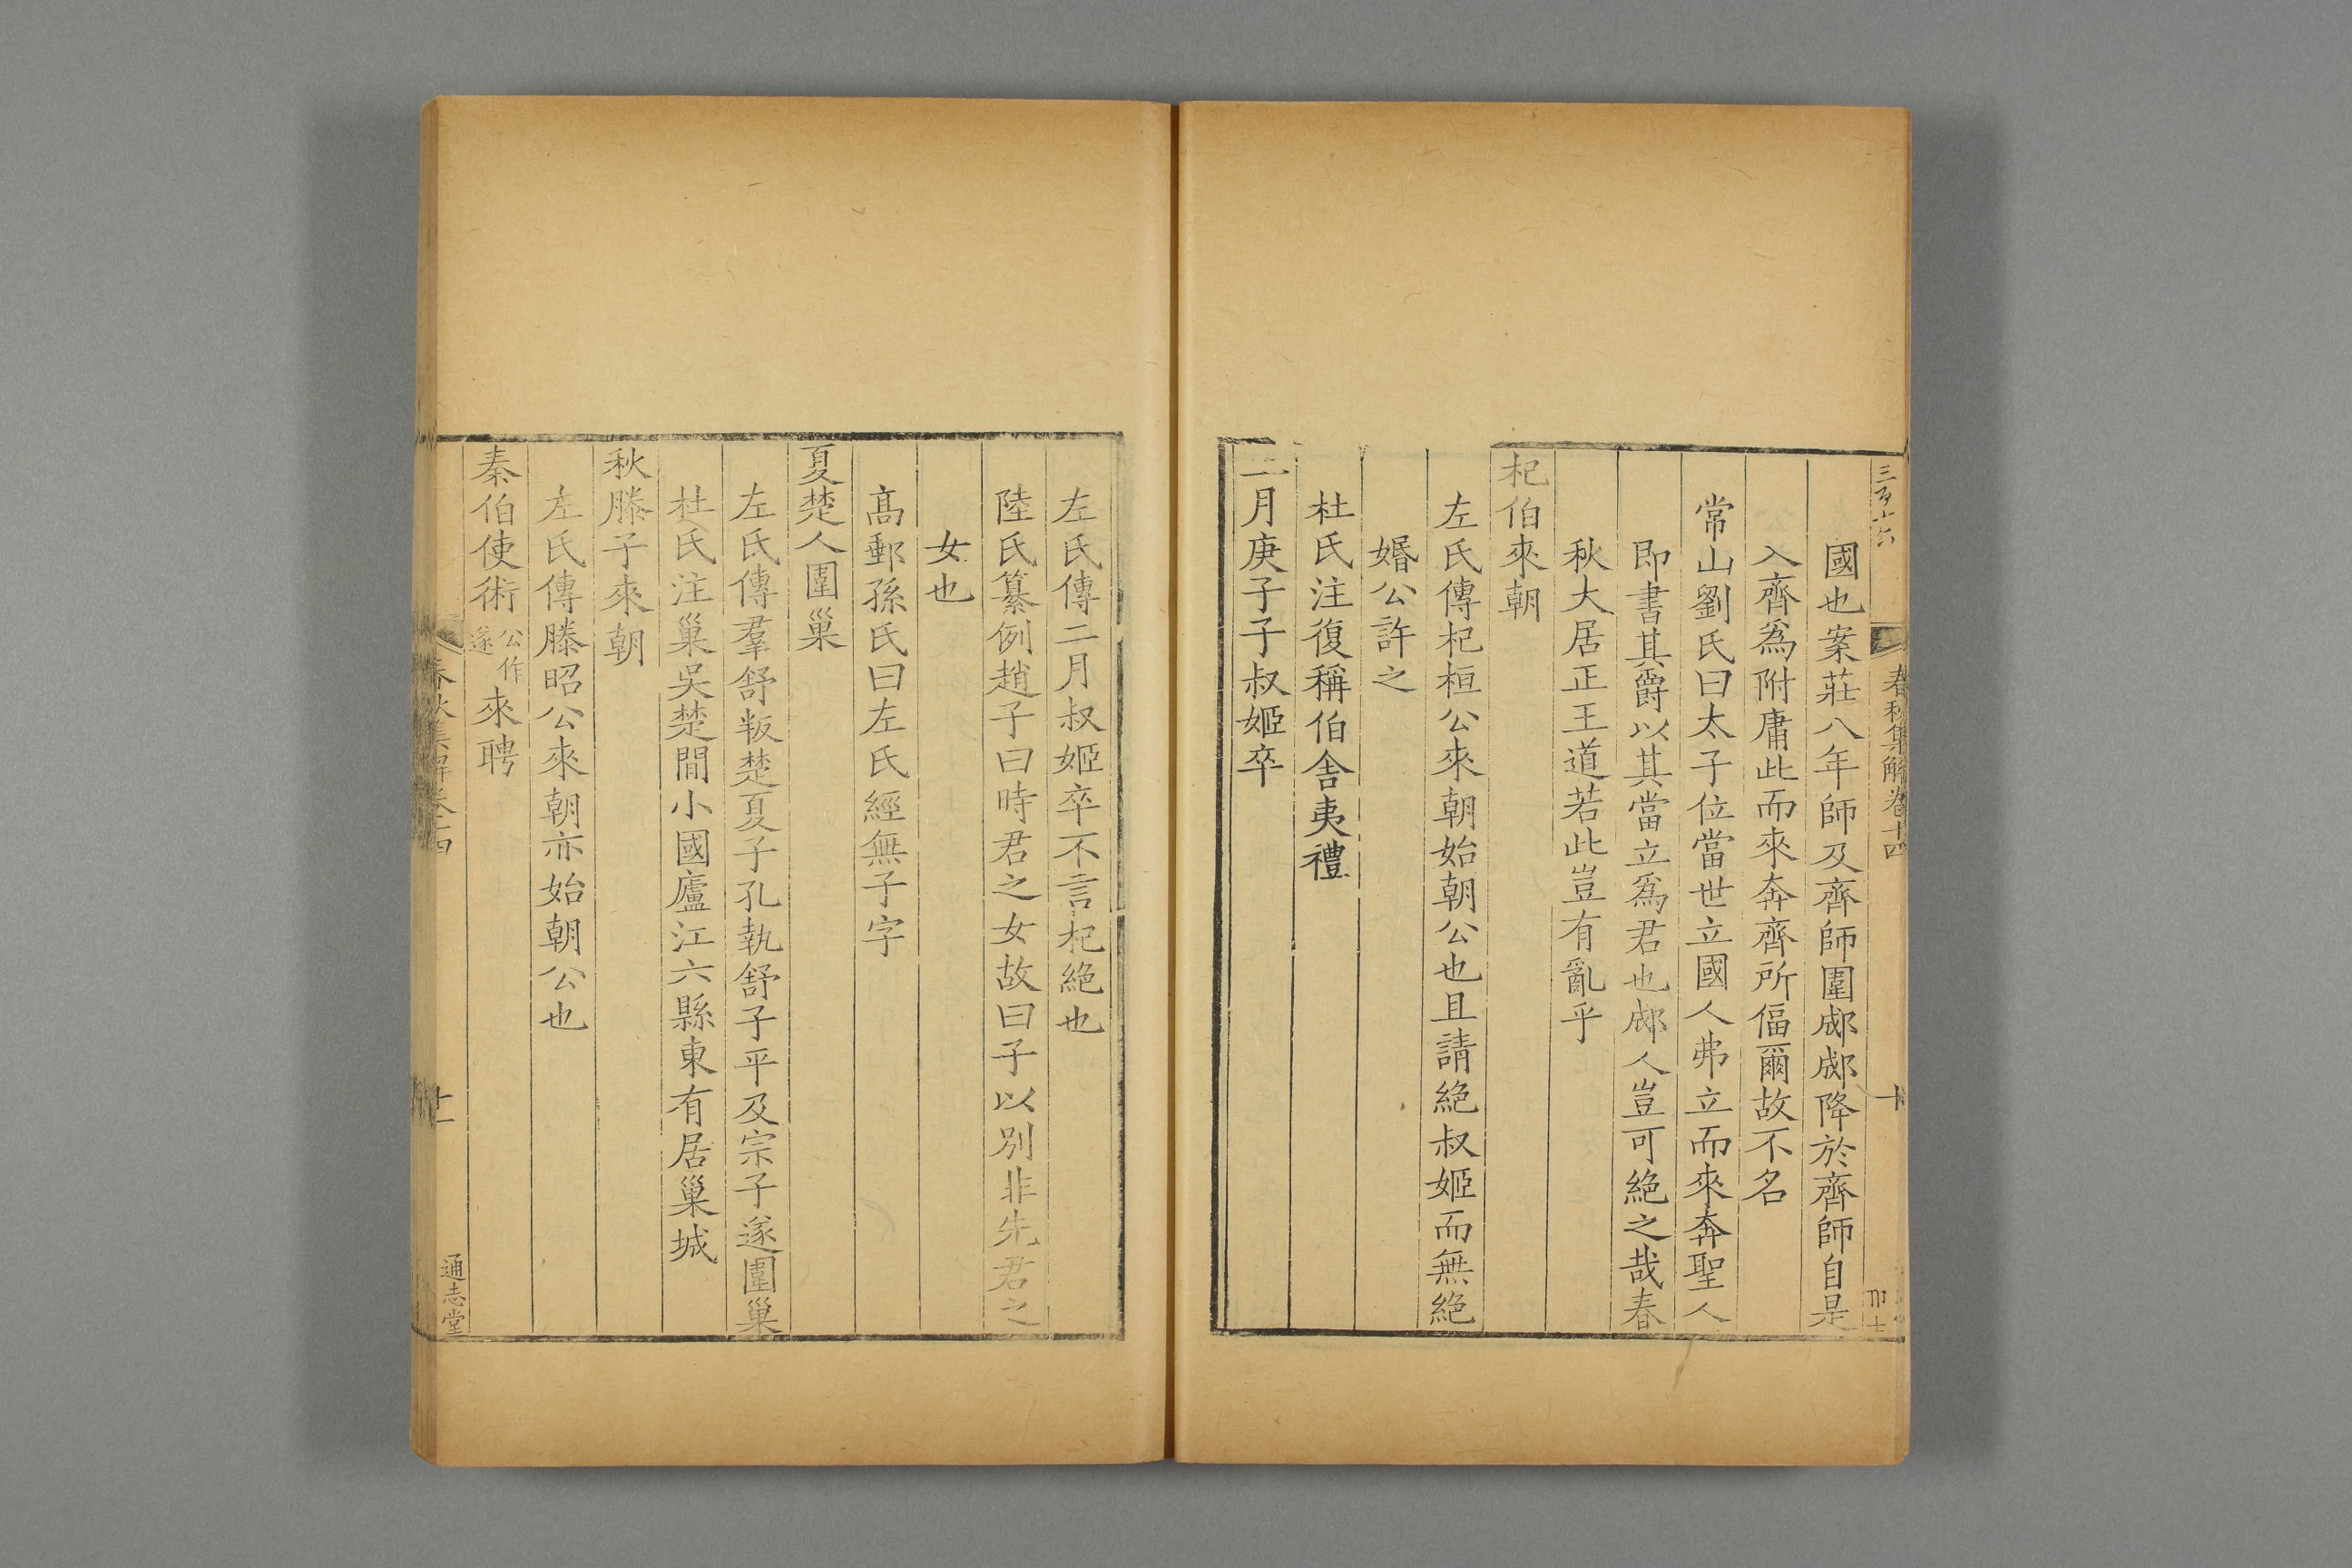 三百十六
春秋集解卷十四
十
國也案莊八年師及齊師圍郕郕降於齊師自是
入齊爲附庸此而來奔齊所偪爾故不名
常山劉氏曰太子位當世立國人弗立而來奔聖人
卽書其爵以其當立爲君也郕人豈可絶之哉春
秋大居正王道若此豈有亂乎
杞伯來朝
左氏傳杞桓公來朝始朝公也且請絶叔姬而無絶
婚公許之
杜氏注復稱伯舍夷禮
二月庚子子叔姬卒
左氏傳二月叔姬卒不言杞絶也
陸氏纂例趙子曰時君之女故曰子以別非先君之
女也
髙郵孫氏曰左氏經無子字
夏楚人圍巢
左氏傳羣舒叛楚夏子孔執舒子平及宗子遂圍巢
杜氏注巢吳楚間小國廬江六縣東有居巢城
秋滕子來朝
左氏傳滕昭公來朝亦始朝公也
秦伯使術公作遂來聘
春秋集解卷十四
十一
通志堂